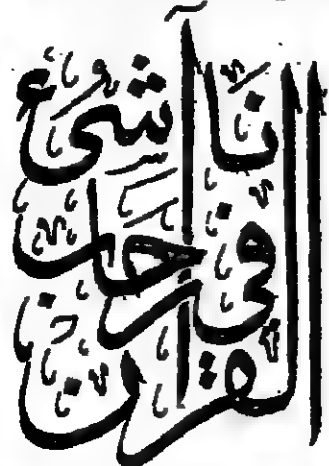 الناشئ
في رحاب
القرآن